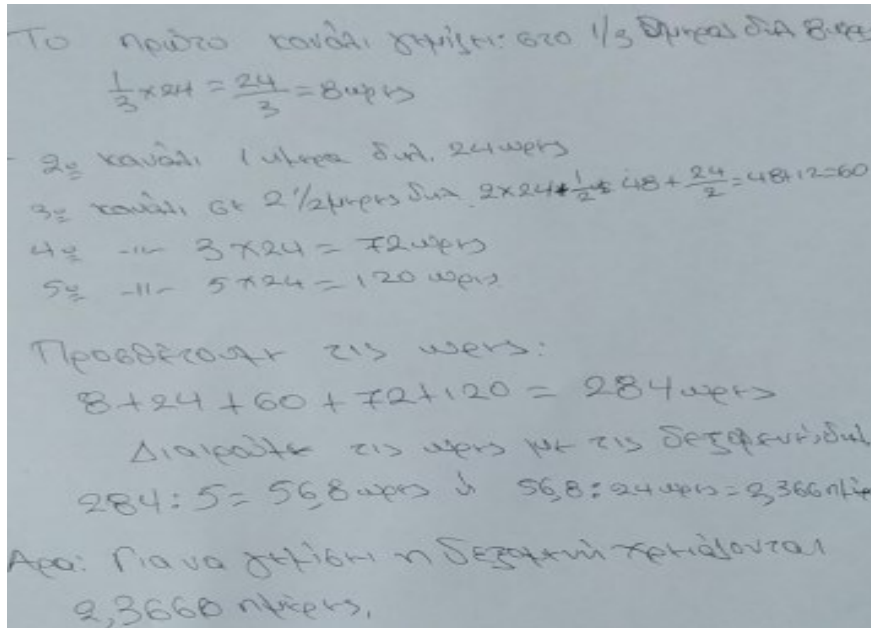 Το πρώτο κανάλι γεμίζει: στο 1/3 ημέρας δηλ 8 ώρες
1/3 × 24 = 24/3 = 8 ώρες
2º κανάλι 1 ημέρα δηλ. 24 ώρες
3º κανάλι σε 2 1/2 μερες δηλ 2×24+ 1/2 = 48 + 24/2 = 48+12=60
4º -〃- 3×24 = 72 ώρες
5º -〃- 5×24 = 120 ώρες
Προσθέτουμε τις ώρες:
8+24+60+72+120 = 284 ώρες
Διαιρούμε τις ώρες με τις δεξαμενές, δηλ
284:5=56,8 ώρες ή 56,8:24 ώρες=2,366 ημέρε
Άρα: Για να γεμίσει η δεξαμενή χρειάζονται
2,3660 ημέρες,